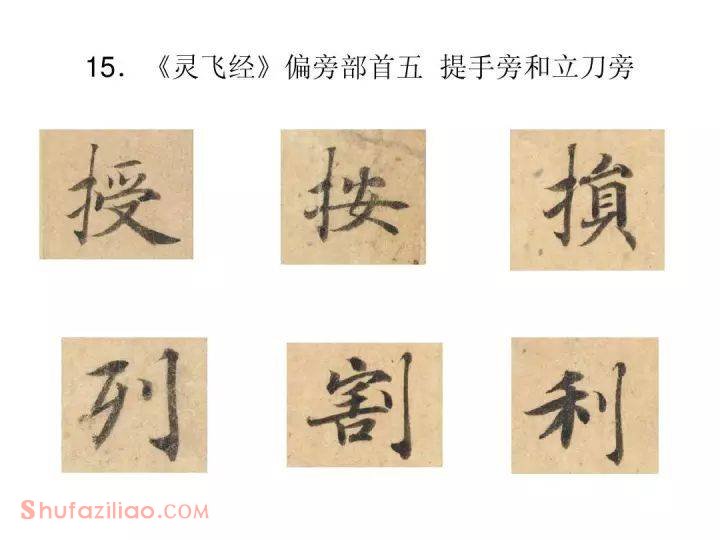 15. 《灵飞经》偏旁部首五 提手旁和立刀旁
授 按 損
列 割 利
Shufaziliao.com